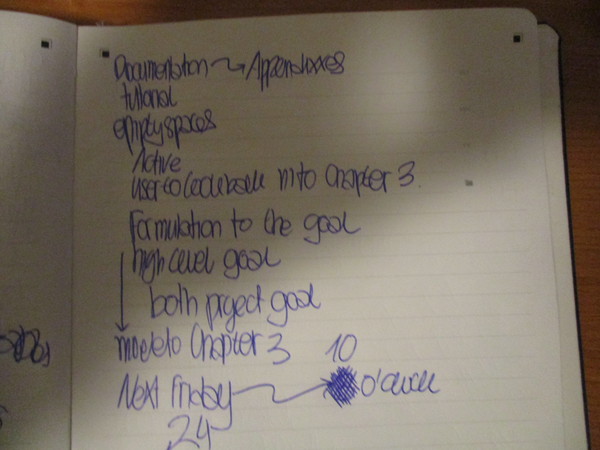 Documentation → Appendixxes
tutorial
empty spaces
Active
user to into Chapter 3.
Formulation to the goal
high level goal
both project goal
move to Chapter 3
10
Next Friday → o'clock
24